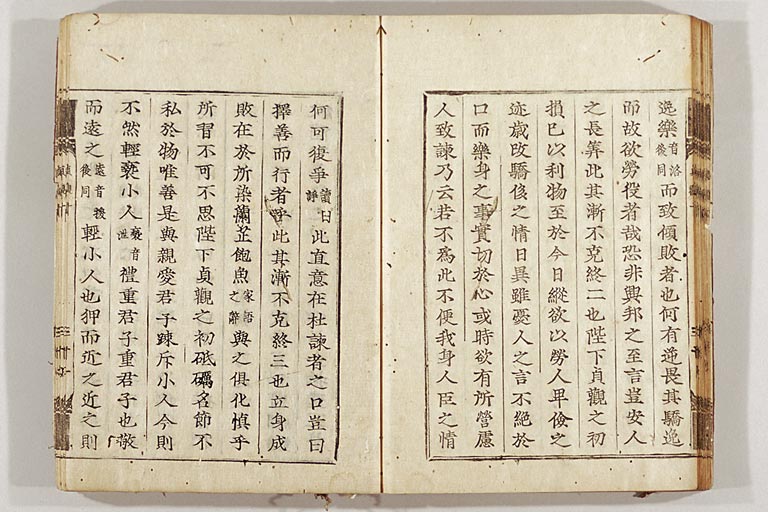 逸樂音洛後同而致傾敗者也何有逆畏其驕逸
而故欲勞役者哉恐非興邦之至言豈安人
之長筭此其漸不克終二也陛下貞觀之初
損已以利物至於今日縱欲以勞人卑儉之
迹歳改驕侈之情日異雖憂人之言不絶於
口而樂身之事實切於心或時欲有所營慮
人致諫乃云若不爲此不便我身人臣之情
何可復爭讀曰諍此直意在杜諫者之口豈曰
擇善而行者乎此其漸不克終三也立身成
敗在於所染蘭芷鮑魚家語之辭與之俱化愼乎
所習不可不思陛下貞觀之初砥礪名節不
私於物唯善是與親愛君子踈斥小人今則
不然輕褻小人褻音泄禮重君子重君子也敬
而遠之遠音援後同輕小人也狎而近之近之則